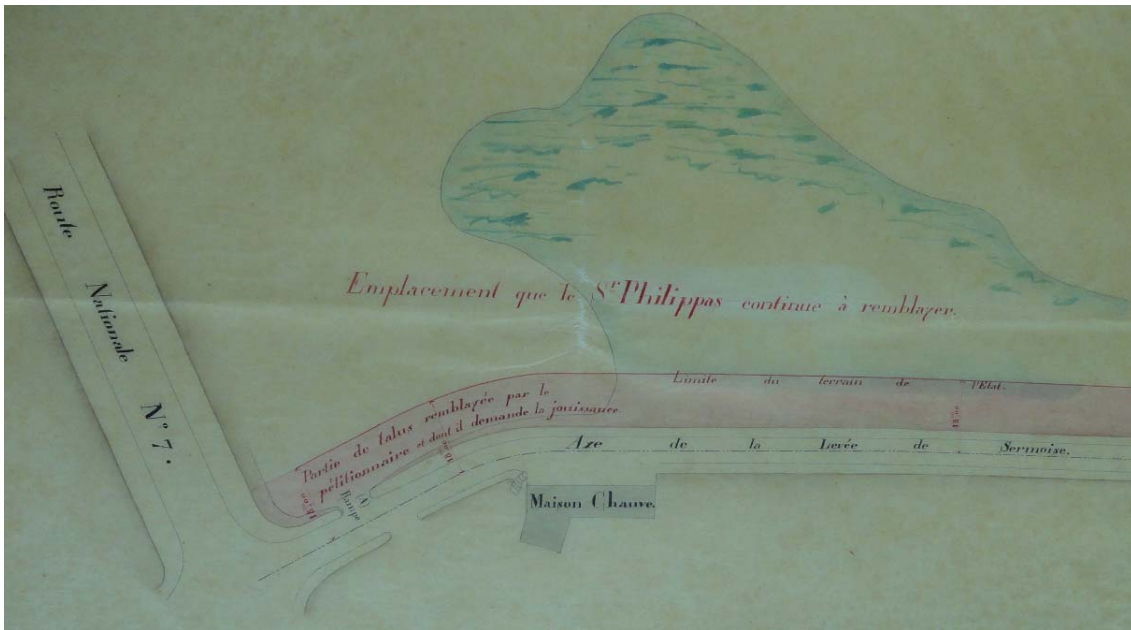 Route Nationale N° 7.
Emplacement que le Sr Philippas continue à remblayer.
Limite du terrain de l'Etat.
Partie de talus remblayée par le
pétitionnaire et dont il demande la jouissance
Axe de la Levée de Sermoise.
Rampe (A)
Maison Chauve.